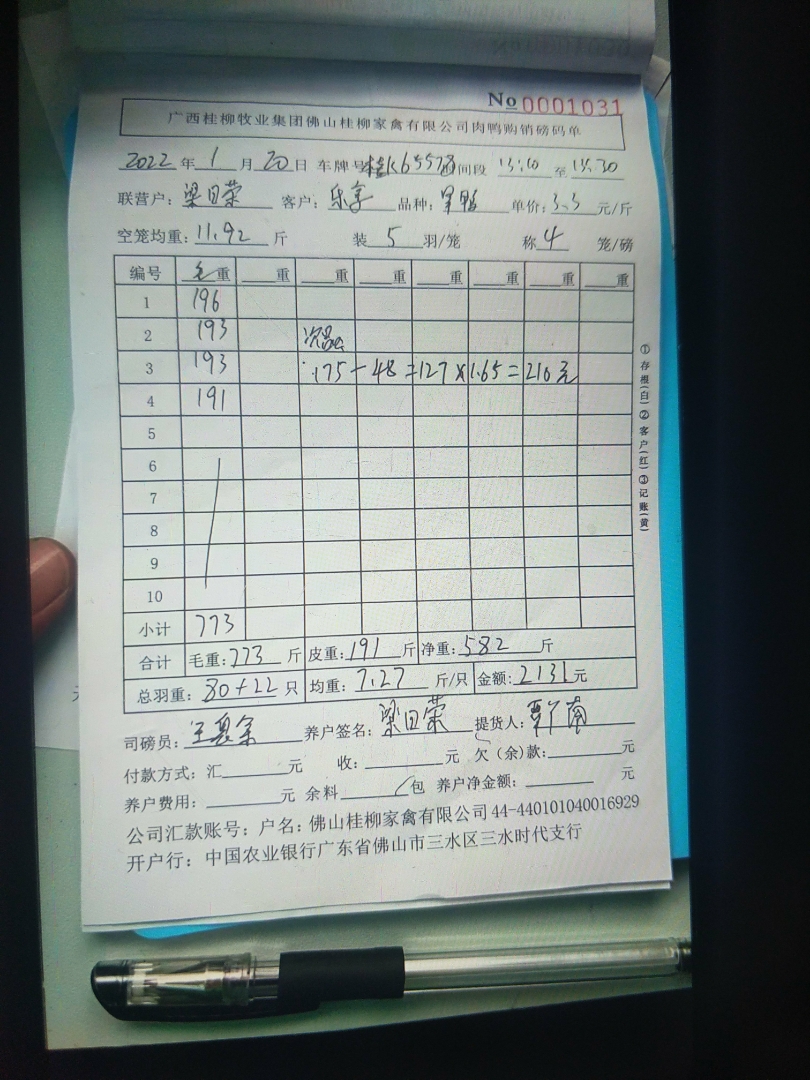 No 0001031
广西桂柳牧业集团佛山桂柳家禽有限公司肉鸭购销磅码单
2022年1月20日 车牌号 桂K65578 时间段 13:10 至 13:30
联营户: 梁日荣 客户: 乐享 品种: 单价: 3.5 元/斤
空笼均重: 11.92 斤 装 5 羽/笼 称 4 笼/磅
编号 毛重 重 重 重 重 重 重 重
1 196
2 193
3 193 175-48=127×1.65=210元
4 191
5
6
7
8
9
10
小计 773
合计 毛重: 773 斤 皮重: 191 斤 净重: 582 斤
总羽重: 80+22 只 均重: 7.27 斤/只 金额: 2131元
司磅员: 养户签名: 梁日荣 提货人:
付款方式: 汇 元 收: 元 欠(余)款: 元
养户费用: 元 余料 包 养户净金额: 元
公司汇款账号: 户名: 佛山桂柳家禽有限公司 44-440101040016929
开户行: 中国农业银行广东省佛山市三水区三水时代支行
①存根(白)②客户(红)③记账(黄)